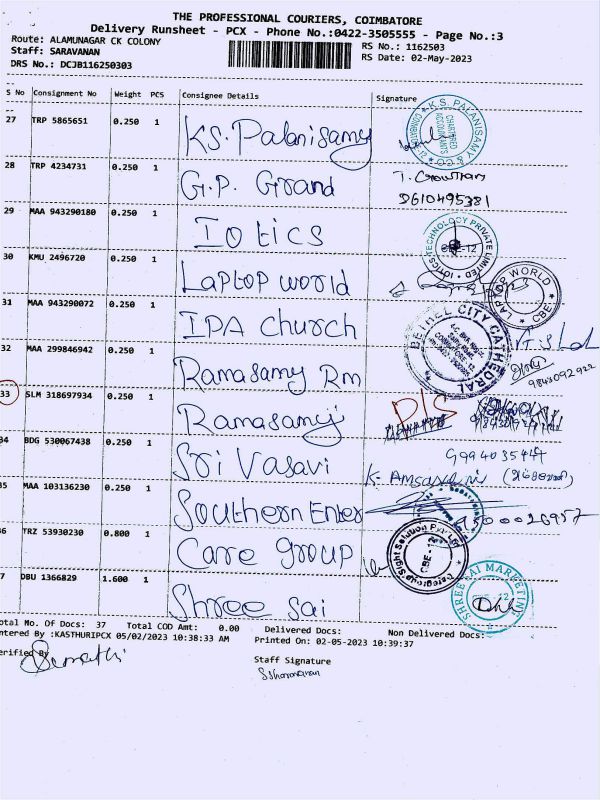 THE PROFESSIONAL COURIERS, COIMBATORE
Delivery Runsheet - PCX - Phone No.:0422-3505555 - Page No.:3
Route: ALAMUNAGAR CK COLONY
RS No.: 1162503
Staff: SARAVANAN
RS Date: 02-May-2023
DRS No.: DCJB116250303
S No Consignment No Weight PCS Consignee Details Signature
27 TRP 5865651 0.250 1 K.S. Palanisamy
K.S. PALANISAMY & CO
CHARTERED ACCOUNTANTS
28 TRP 4234731 0.250 1 G.P. Grand
29 MAA 943290180 0.250 1 Iotics
IOTICS TECHNOLOGY PRIVATE LIMITED
CBE-12
30 KMU 2496720 0.250 1 Laptop world
LAPTOP WORLD
CBE
31 MAA 943290072 0.250 1 IPA church
BETHEL CITY CATHEDRAL
32 MAA 299846942 0.250 1 Ramasamy Rm
9843092922
33 SLM 318697934 0.250 1 Ramasamy
D/S
34 BDG 530067438 0.250 1 Sri Vasavi
35 MAA 103136230 0.250 1 Southern Enter
36 TRZ 53930230 0.800 1 Care group
Caregroup Sight Solution Pvt Ltd
CBE-12
37 DBU 1366829 1.600 1 Shree sai
SHREE SAI MARKETING
Total No. Of Docs: 37 Total COD Amt: 0.00 Delivered Docs: Non Delivered Docs:
Entered By :KASTHURIPCX 05/02/2023 10:38:33 AM Printed On: 02-05-2023 10:39:37
Verified By
Staff Signature